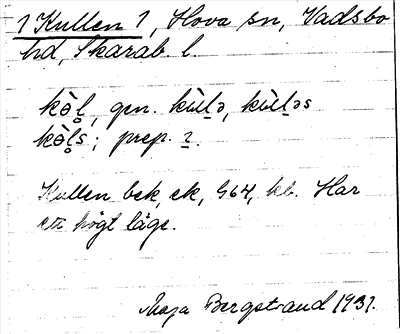 1 Kullen 1, Hova sn, Vadsbo
hd, Skarab. l.
kö̀l̥, gen. kùl̲ə, kùl̲əs
kö̀l̥s; prep. 2.
Kullen bck, ek, G64, kb. Har
ett högt läge.
Maja Bergstrand 1931.